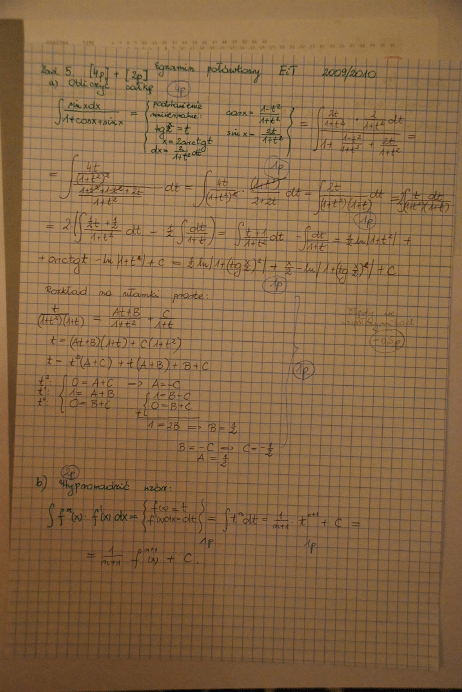 Zad. 5 [4p] + [2p] Egzamin połówkowy EiT 2009/2010
a) Obliczyć całkę 4p
∫ sinx dx / (1+cosx+sinx) = { podstawienie uniwersalne: tg x/2 = t x = 2arctgt dx = 2/(1+t²) dt cosx = (1-t²)/(1+t²) sinx = 2t/(1+t²) } = ∫ (2t/(1+t²) · 2/(1+t²) dt) / (1 + (1-t²)/(1+t²) + 2t/(1+t²)) =
= ∫ (4t/(1+t²)²) / ((1+t²+1-t²+2t)/(1+t²)) dt = ∫ 4t/(1+t²)² · (1+t²)/(2+2t) dt = ∫ 2t/((1+t²)(1+t)) dt = 2∫ t dt/((1+t²)(1+t)) 1p 1p
= 2( ∫ (½t + ½)/(1+t²) dt - ½ ∫ dt/(1+t) ) = ∫ (t+1)/(1+t²) dt - ∫ dt/(1+t) = ½ ln|1+t²| +
+ arctgt - ln|1+t| + C = ½ ln|1+(tg x/2)²| + x/2 - ln|1+(tg x/2)| + C 1p
Rozkład na ułamki proste:
t/((1+t²)(1+t)) = (At+B)/(1+t²) + C/(1+t)
t = (At+B)(1+t) + C(1+t²)
t = t²(A+C) + t(A+B) + B+C
t²: { 0 = A+C → A=-C
t¹: 1 = A+B { 1=B-C
t⁰: 0 = B+C 0=B+C 1p
1 = 2B ⇒ B = ½
B = -C ⇒ C = -½
A = ½
2p
b) Wyprowadzić wzór:
∫ fⁿ(x) · f'(x) dx = { f(x) = t f'(x)dx = dt } = ∫ tⁿ dt = 1/(n+1) tⁿ⁺¹ + C =
1p 1p
= 1/(n+1) fⁿ⁺¹(x) + C.